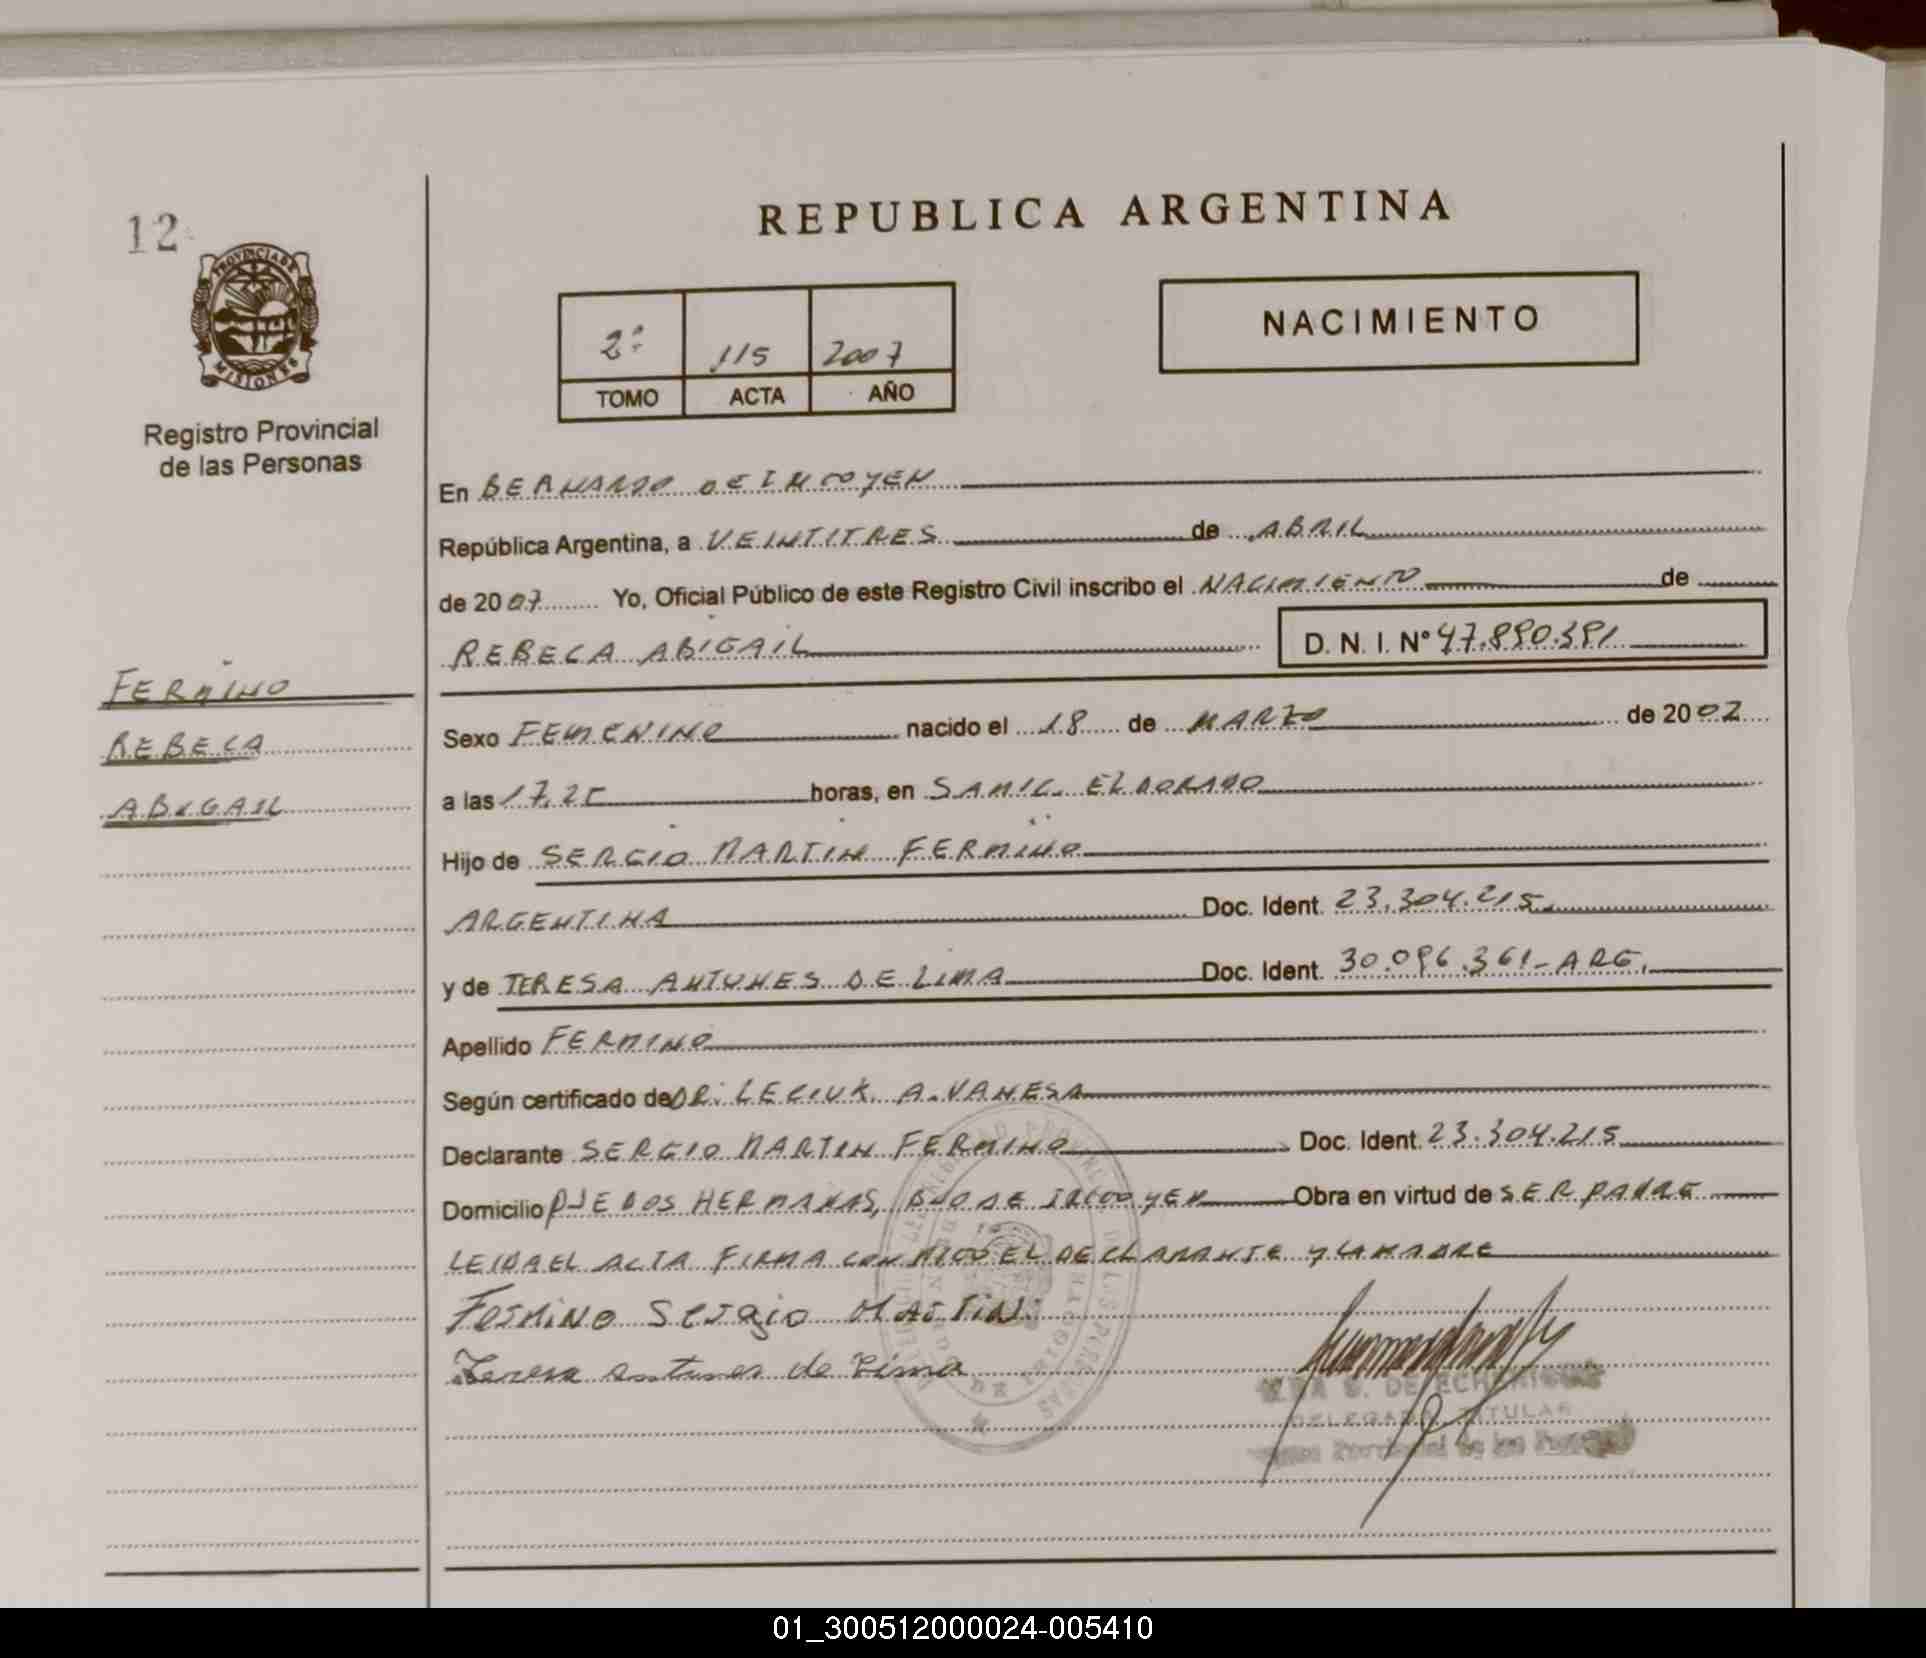 REPUBLICA ARGENTINA
12
PROVINCIA DE
MISIONES
Registro Provincial
de las Personas
2º 115 2007
TOMO ACTA AÑO
NACIMIENTO
En BERNARDO DE IRIGOYEN
República Argentina, a VEINTITRES de ABRIL
de 2007 Yo, Oficial Público de este Registro Civil inscribo el NACIMIENTO de
REBECA ABIGAIL D. N. I. Nº 47.890.391
FERMINO
REBECA
ABIGAIL
Sexo FEMENINO nacido el 18 de MARZO de 2007
a las 17,25 horas, en SAMIC. ELDORADO
Hijo de SERGIO MARTIN FERMINO
ARGENTINA Doc. Ident. 23.304.215
y de TERESA ANTUNES DE LIMA Doc. Ident. 30.096.361-ARG.
Apellido FERMINO
Según certificado de DR. LECIUK A. VANESA
Declarante SERGIO MARTIN FERMINO Doc. Ident. 23.304.215
Domicilio PJE DOS HERMANAS, BDO DE IRIGOYEN Obra en virtud de SER PADRE
LEIDA EL ACTA FIRMA CONMIGO EL DECLARANTE Y LA MADRE
Fermino Sergio Martin
Teresa antunes de Lima
DELEGADA TITULAR
Provincial de las Personas
01_300512000024-005410